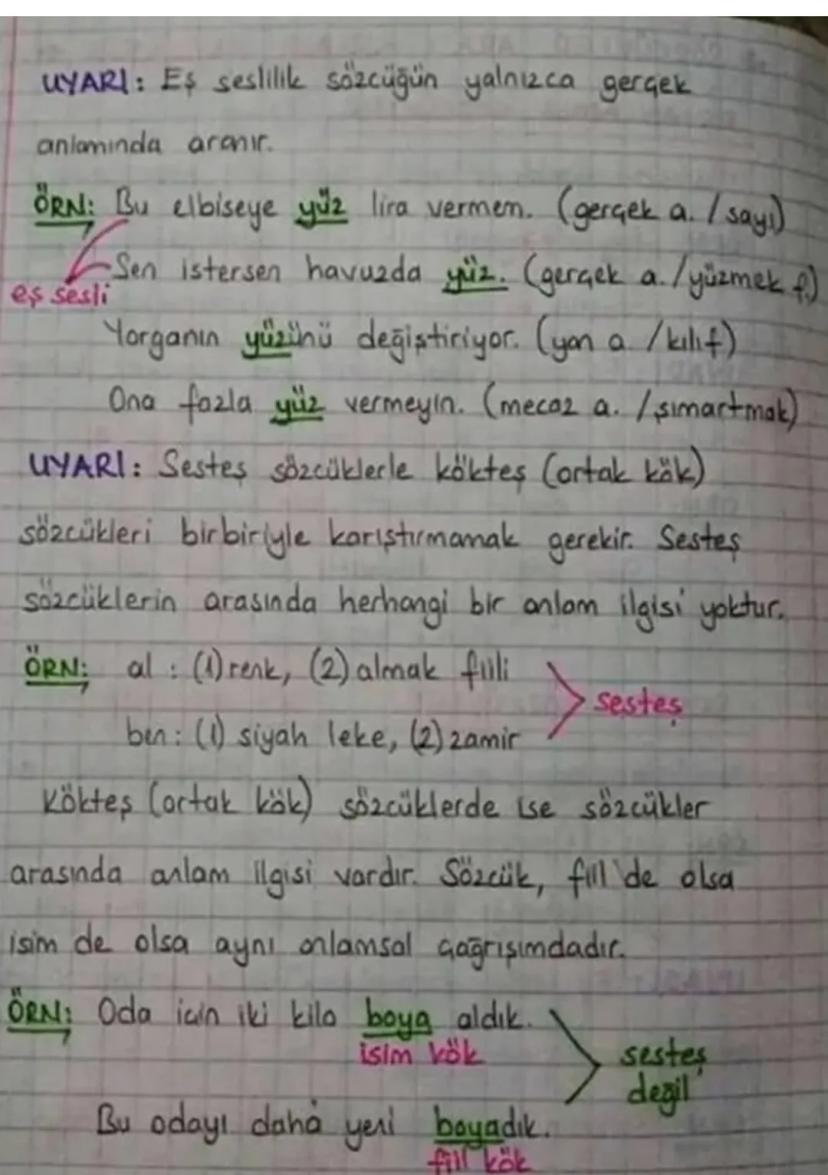 UYARI: Eş seslilik sözcüğün yalnızca gerçek
anlamında aranır.
ÖRN: Bu elbiseye yüz lira vermem. (gerçek a. / sayı)
Sen istersen havuzda yüz. (gerçek a. / yüzmek f.)
eş sesli
Yorganın yüzünü değiştiriyor. (yan a. / kılıf)
Ona fazla yüz vermeyin. (mecaz a. / şımartmak)
UYARI: Sesteş sözcüklerle kökteş (ortak kök)
sözcükleri birbiriyle karıştırmamak gerekir. Sesteş
sözcüklerin arasında herhangi bir anlam ilgisi yoktur.
ÖRN: al : (1) renk, (2) almak fiili
sesteş
ben : (1) siyah leke, (2) zamir
Kökteş (ortak kök) sözcüklerde ise sözcükler
arasında anlam ilgisi vardır. Sözcük, fiil de olsa
isim de olsa aynı anlamsal çağrışımdadır.
ÖRN: Oda için iki kilo boya aldık.
isim kök
sesteş
değil
Bu odayı daha yeni boyadık.
fiil kök